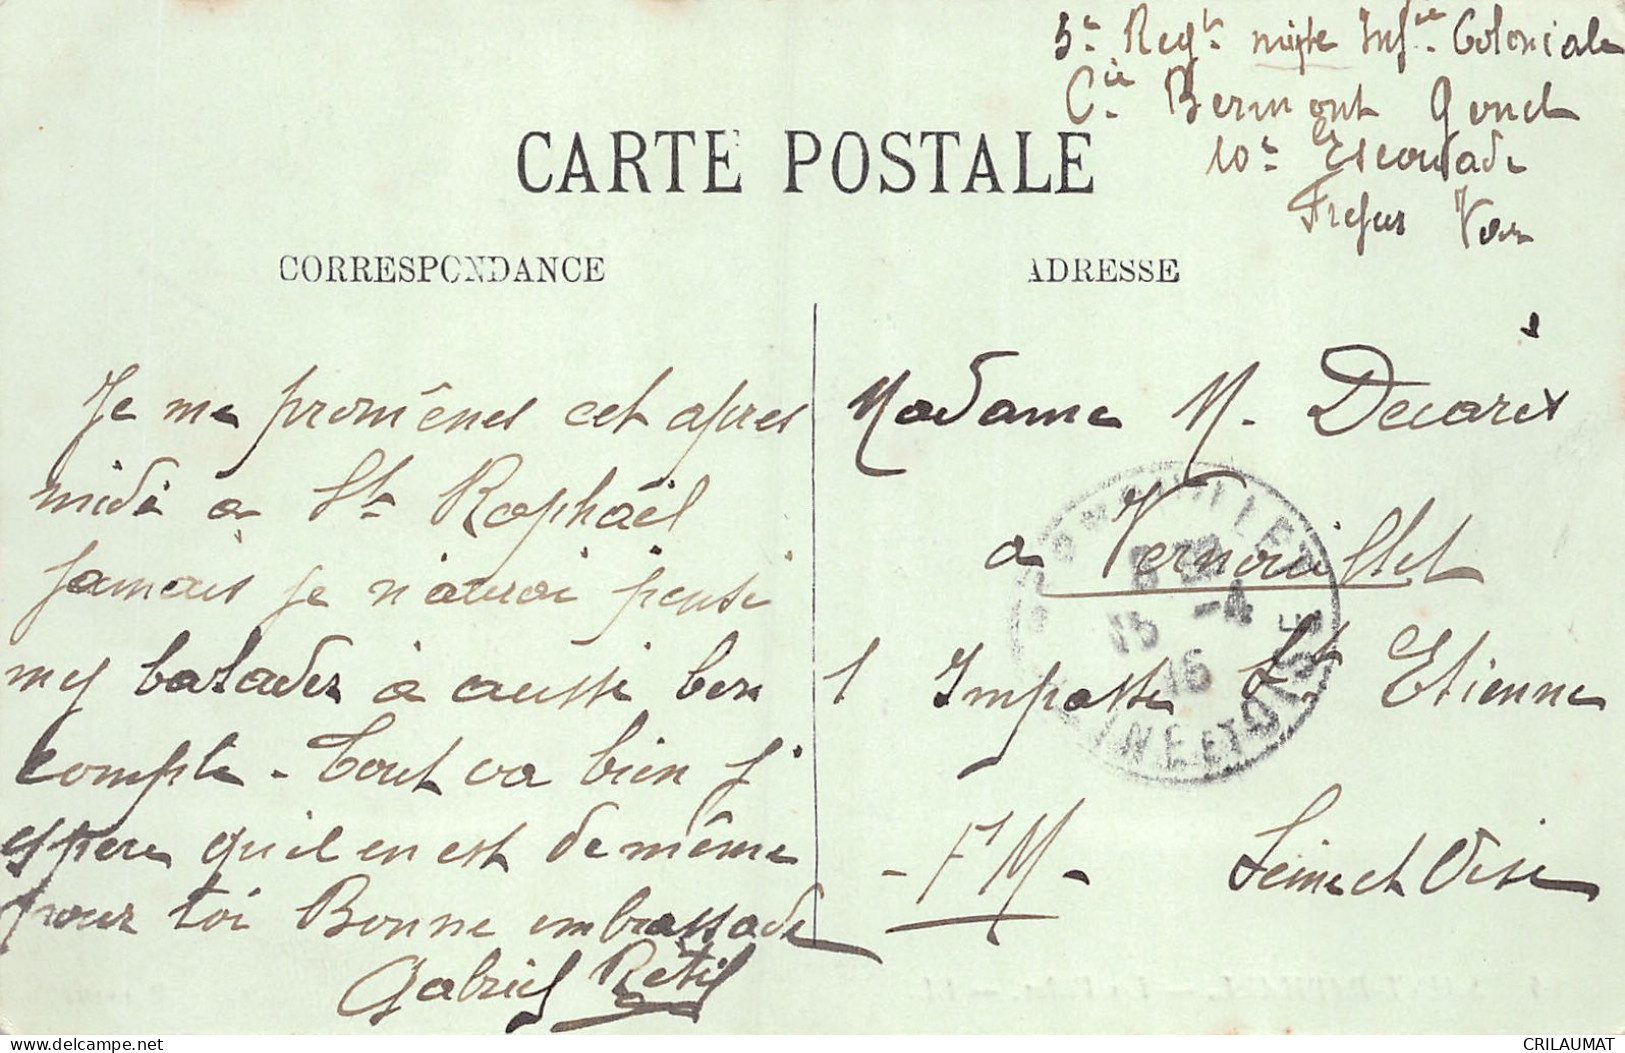 5e Regt mixte Infie Coloniale
Cie Bermont
10e Escouade
Frejus Var
CARTE POSTALE
CORRESPONDANCE
ADRESSE
Je me promènes cet apres
midi a St Raphaël
jamais je n'aurai pensé
my balader à aussi bon
compte - Tout va bien j'
espere qu'il en est de même
pour toi Bonne embrassade
Gabriel Retif
Madame M. Decaris
a Vernouillet
1 Impasse St Etienne
- FM -
Seine et Oise
VERNOUILLET
15 -4
16
SEINE ET OISE
CRILAUMAT